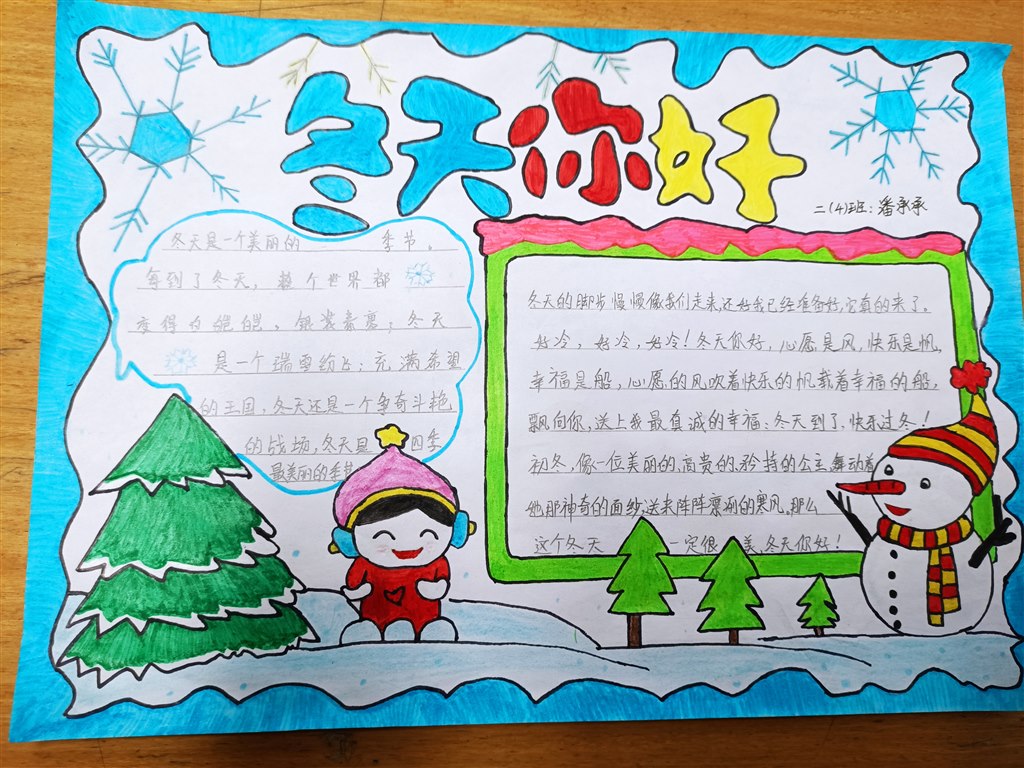 冬天你好
二(4)班:潘承承
冬天是一个美丽的 季节。
每到了冬天, 整个世界都
变得白皑皑。银装素裹;冬天
是一个瑞雪纷飞;充满希望
的王国,冬天还是一个争奇斗艳
的战场,冬天是 四季
最美丽的季
冬天的脚步慢慢像我们走来,还好我已经准备好,它真的来了。
好冷,好冷,好冷!冬天你好,心愿是风,快乐是帆,
幸福是船,心愿的风吹着快乐的帆载着幸福的船,
飘向你,送上我最真诚的幸福:冬天到了,快乐过冬!
初冬,像一位美丽的、高贵的、矜持的公主,舞动着
她那神奇的面纱,送来阵阵凛冽的寒风。那么
这个冬天 一定很 美,冬天你好!